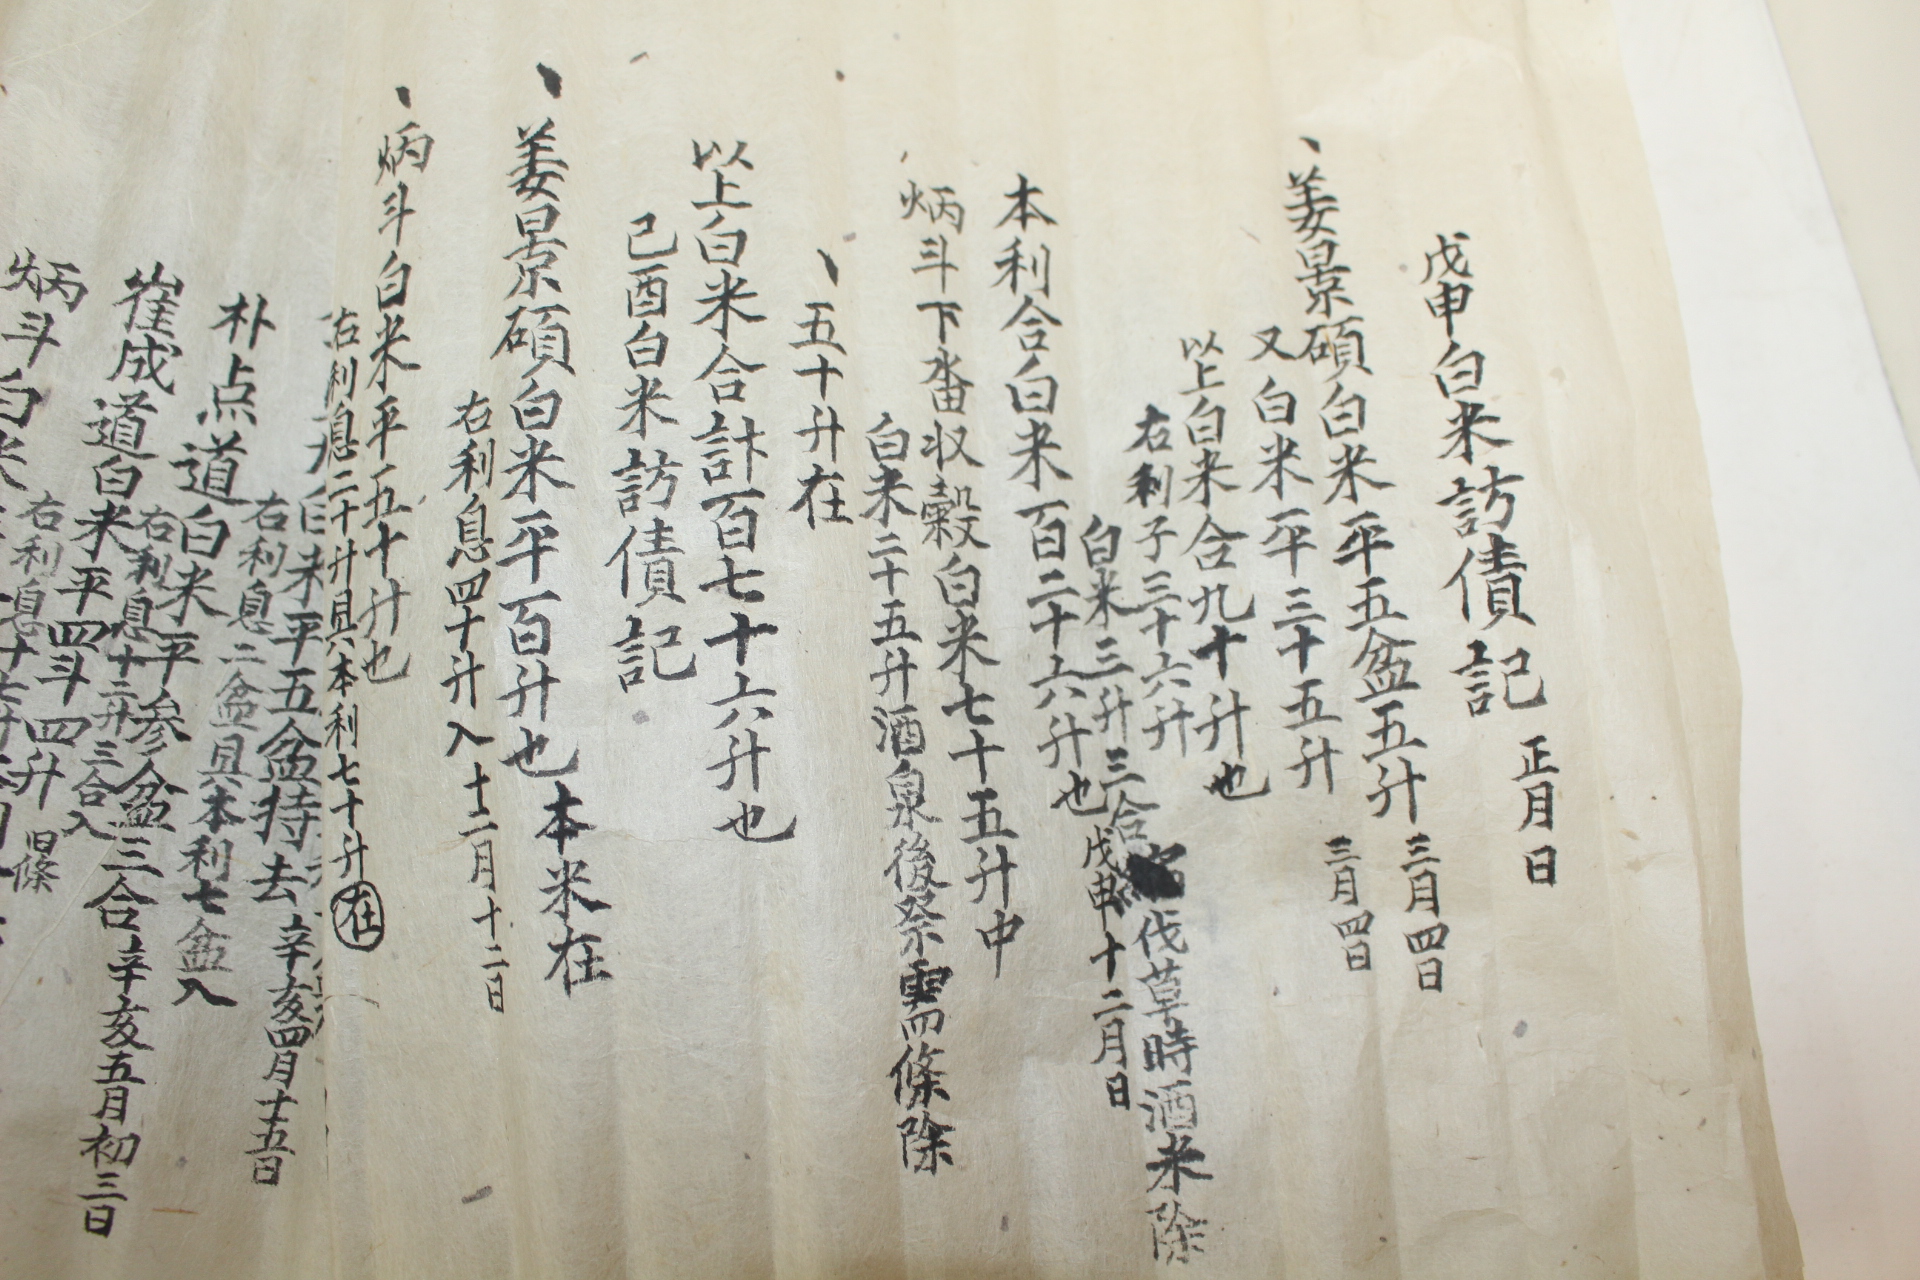 戊申白米訪債記 正月日
姜景碩白米平五盆五升 三月四日
又白米平三十五升 三月四日
以上白米合九十升也
右利子三十六升
白米三升三合 伐草時酒米除
本利合白米百二十六升也 戊申十二月日
炳斗下畓収穀白米七十五升中
白米二十五升酒泉後祭需條除
五十升在
以上白米合計百七十六升也
己酉白米訪債記
姜景碩白米平百升也 本米在
右利息四十升入 十二月十二日
炳斗白米平五十升也
右利息二十升 具本利七十升 在
白米平五盆持去 辛亥四月十五日
右利息二盆具本利七盆入
朴点道白米平参盆三合
右利息十二升三合入
崔成道白米平四斗四升 辛亥五月初三日
右利息十七升 旧條
炳斗白米